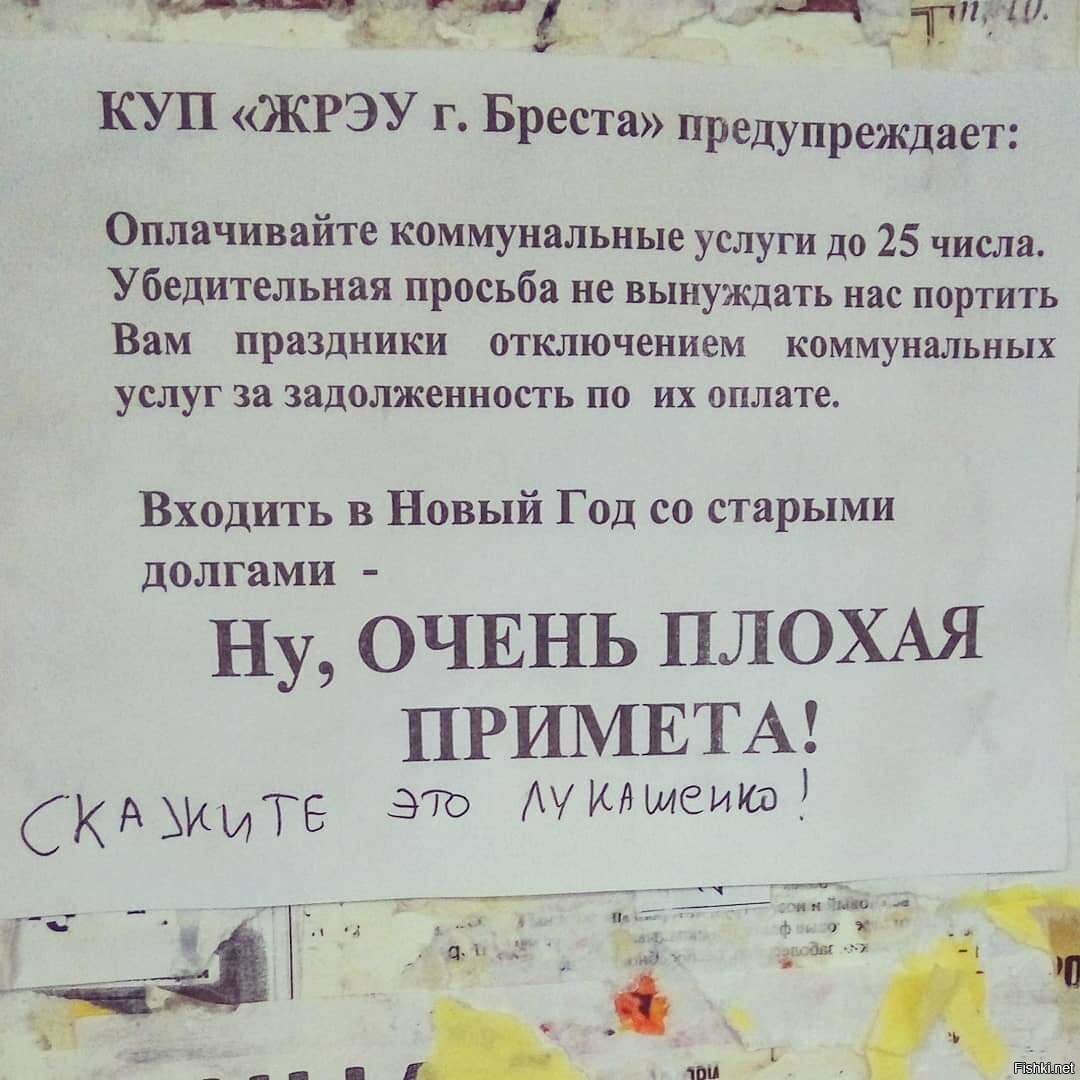 п, 10.
КУП «ЖРЭУ г. Бреста» предупреждает:
Оплачивайте коммунальные услуги до 25 числа.
Убедительная просьба не вынуждать нас портить
Вам праздники отключением коммунальных
услуг за задолженность по их оплате.
Входить в Новый Год со старыми
долгами -
Ну, ОЧЕНЬ ПЛОХАЯ
ПРИМЕТА!
СКАЖИТЕ ЭТО ЛУКАШЕНКО!
Fishki.net